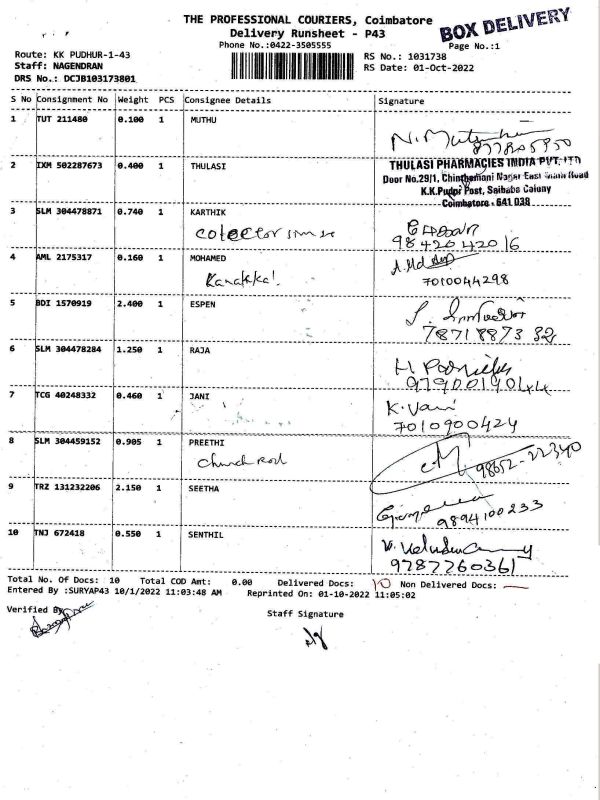 THE PROFESSIONAL COURIERS, Coimbatore
BOX DELIVERY
Delivery Runsheet - P43
Phone No.:0422-3505555
Page No.:1
Route: KK PUDHUR-1-43
RS No.: 1031738
Staff: NAGENDRAN
RS Date: 01-Oct-2022
DRS No.: DCJB103173801
S No Consignment No Weight PCS Consignee Details Signature
1 TUT 211480 0.100 1 MUTHU
2 IXM 502287673 0.400 1 THULASI
THULASI PHARMACIES INDIA PVT. LTD
Door No.29/1, Chinthamani Nagar East Main Road
K.K.Pudur Post, Saibaba Colony
Coimbatore - 641 038
3 SLM 304478871 0.740 1 KARTHIK
9842042016
4 AML 2175317 0.160 1 MOHAMED
7010044298
5 BDI 1570919 2.400 1 ESPEN
7871887332
6 SLM 304478284 1.250 1 RAJA
9790019044
7 TCG 40248332 0.460 1 JANI
K. Vani
7010900424
8 SLM 304459152 0.905 1 PREETHI
Church Rod
98652-22340
9 TRZ 131232206 2.150 1 SEETHA
9894100233
10 TNJ 672418 0.550 1 SENTHIL
9787260361
Total No. Of Docs: 10 Total COD Amt: 0.00 Delivered Docs: 10 Non Delivered Docs: —
Entered By :SURYAP43 10/1/2022 11:03:48 AM Reprinted On: 01-10-2022 11:05:02
Verified By
Staff Signature